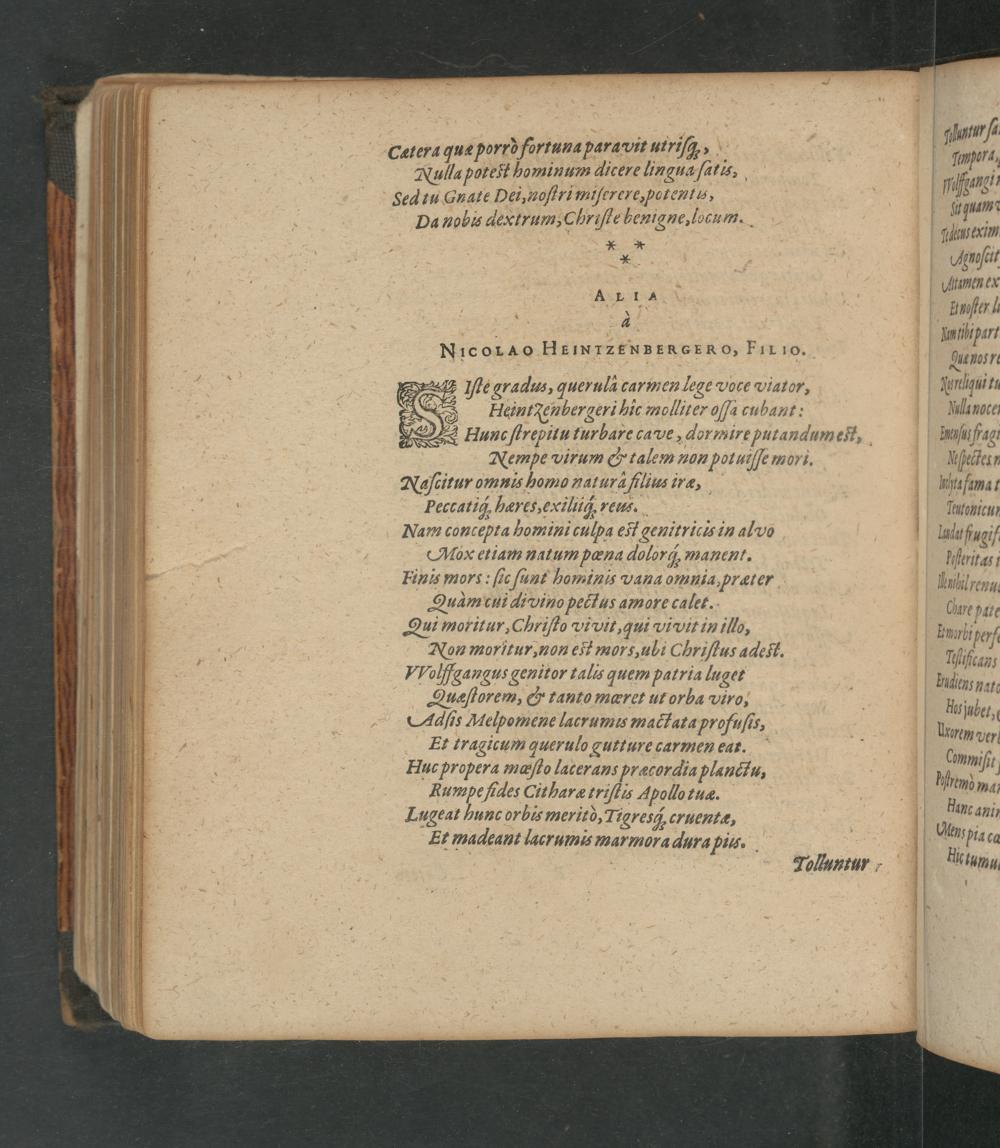 Cætera quæ porrò fortuna paravit utrisq́;,
Nulla potest hominum dicere lingua satis,
Sed tu Gnate Dei, nostri miserere, potentis,
Da nobis dextrum, Christe benigne, locum.
* *
*
ALIA
à
NICOLAO HEINTZENBERGERO, FILIO.
SIste gradus, querulâ carmen lege voce viator,
Heintzenbergeri hîc molliter ossa cubant:
Hunc strepitu turbare cave, dormire putandum est,
Nempe virum & talem non potuisse mori.
Nascitur omnis homo naturâ filius iræ,
Peccatiq́; hæres, exiliiq́; reus.
Nam concepta homini culpa est genitricis in alvo
Mox etiam natum pœna dolorq́; manent.
Finis mors: sic sunt hominis vana omnia, præter
Quàm cui divino pectus amore calet.
Qui moritur, Christo vivit, qui vivit in illo,
Non moritur, non est mors, ubi Christus adest.
VVolffgangus genitor talis quem patria luget
Quæstorem, & tanto mœret ut orba viro,
Adsis Melpomene lacrumis mactata profusis,
Et tragicum querulo gutture carmen eat.
Huc propera mœsto lacerans præcordia planctu,
Rumpe fides Citharæ tristis Apollo tuæ.
Lugeat hunc orbis meritò, Tigresq́; cruentæ,
Et madeant lacrumis marmora dura piis.
Tolluntur
Tolluntur
Tempora,
Wolffgangi
Sit quam
Te decus exim
Agnoscit
Attamen ex
Et noster
Nam tibi part
Quæ nos re
Nos reliqui tu
Nulla nocen
Emensus fragi
Ne spectes
Inclyta fama
Teutonicum
Laudat frugif
Posteritas
Ille nihil renu
Chare pate
Et morbi perfe
Testificans
Erudiens nato
Hos jubet,
Uxorem ver
Commisit
Postremò
Hanc anim
Mens pia
Hic tumul